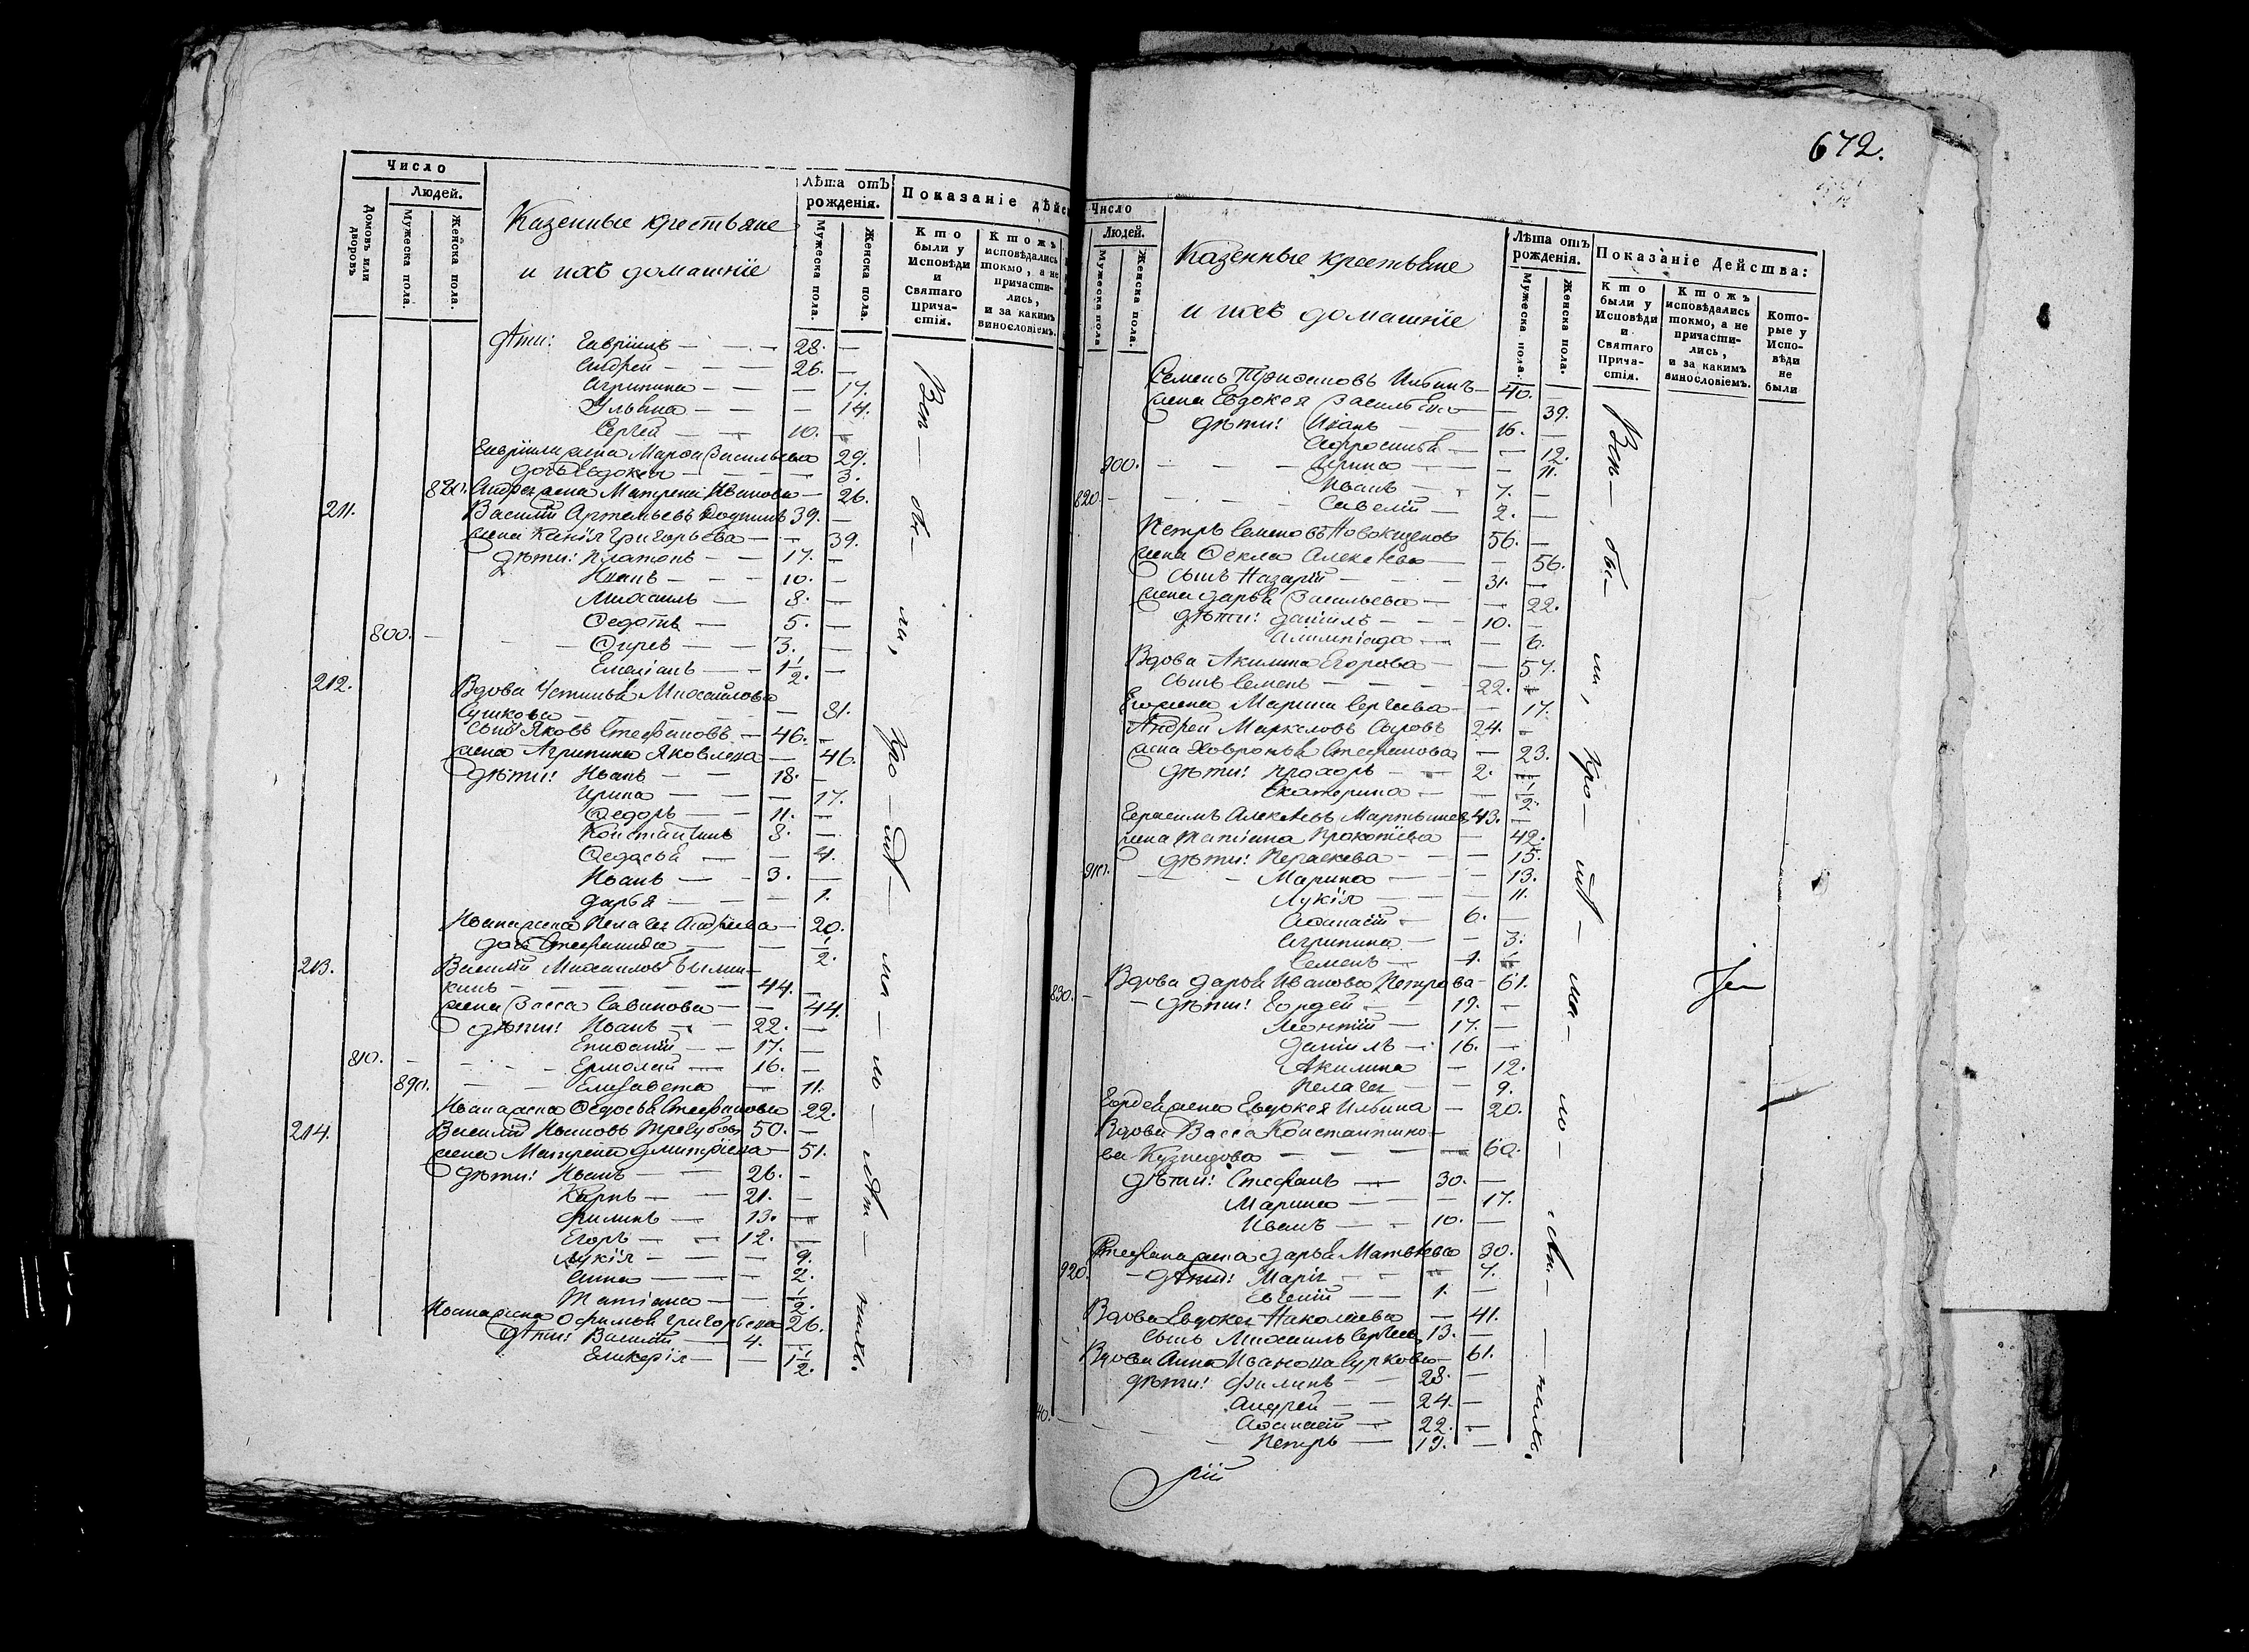 Число
Людей.
Домовъ или дворовъ
Мужеска пола.
Женска пола.
Казенные крестьяне
и ихъ домашніе
Лѣта отъ рожденія.
Мужеска пола.
Женска пола.
Показаніе дѣйс
Кто были у Исповѣди и Святаго Прича-стія.
Ктожъ исповѣдались токмо, а не причасти-лись, и за какимъ винословіемъ.
Дѣти: Гавріилъ — 28. —
Андрей — 26. —
Агрипина — — 17.
Ульяна — — 14.
Сергей — 10. —
Гавріила жена Марѳа Васильева 29.
дочь Евдокея — — 3.
880. Андрея жена Матрена Иванова — 26.
211. Василій Артемьевъ 39. —
жена Григорьева — — 39.
Дѣти: Платонъ — 17. —
Иванъ — 10. —
Михаилъ — 8. —
Ѳедотъ — 5. —
800. — 3. —
Емеліанъ — 1 1/2. —
212. Вдова Устинья Михайлова
Сушкова — — 81.
Сынъ Яковъ Стефановъ — 46. —
жена Агрипина Яковлева — 46.
Дѣти: Иванъ — 18. —
Ирина — — 17.
Ѳедоръ — 11. —
Константинъ 8. —
Ѳедосья — — 4.
Иванъ — 3. —
Дарья — — 1.
Ивана жена Пелагея Андреева — 20.
дочь Стефанида — — 1/2.
213. Василій Михаиловъ
кинъ — 44. —
жена Васса Савинова — — 44.
Дѣти: Иванъ — 22. —
Епифаній — 17. —
810. Ермолай — 16. —
890. Елизавета — 11.
Ивана жена Ѳедосья Стефанова 22.
214. Василій Ивановъ Трегубовъ 50. —
жена Матрена Дмитріева — 51.
Дѣти: Иванъ — 26. —
Карпъ — 21. —
Филипъ — 13. —
Егоръ — 12. —
Лукія — — 9.
Анна — — 2.
Татіана — — 1/2.
Ивана жена Ефимья Григорьева 26.
Дѣти: Василій — 4. —
Гликерія — — 1 1/2.
672.
Число
Людей.
Мужеска пола
Женска пола.
Казенные крестьяне
и ихъ домашніе
Лѣта отъ рожденія.
Мужеска пола.
Женска пола.
Показаніе Действа:
Кто были у Исповѣди и Святаго Прича-стія.
Ктожъ исповѣдались токмо, а не причасти-лись, и за какимъ винословіемъ.
Кото-рые у Испо-вѣди не были
Семенъ Ильинъ — 40. —
жена Евдокея Васильева — 39.
Дѣти: Иванъ — 16. —
Афросинья — — 12.
900. — Ирина — — 11.
Иванъ — 7. —
820. — Савелій — 2. —
Петръ Семеновъ Новокщеновъ 56. —
жена Ѳекла Алексѣева — — 56.
Сынъ Назарій — 31. —
жена Дарья Васильева — — 22.
Дѣти: Даніилъ — 10. —
Алимпіада — — 6.
Вдова Акилина Егорова — — 57.
Сынъ Семенъ — 22. —
жена Марина Сергеева — 17.
Андрей Маркеловъ Сыровъ 24. —
жена Хавронья Стефанова — 23.
Дѣти: Прохоръ — 2. —
Екатерина — — 1/2.
Герасимъ Алексѣевъ 43. —
жена Татіана Прокопіева — 42.
Дѣти: Параскева — — 15.
910. — Марина — — 13.
Лукія — — 11.
Аѳанасій — 6. —
Агрипина — — 3.
Семенъ — 1. —
Вдова Дарья Иванова Петрова — 61.
830. — Дѣти: Гордей — 19. —
Леонтій — 17. —
Даніилъ — 16. —
Акилина — 12.
Пелагея — — 9.
Гордея жена Евдокея Ильина — 20.
Вдова Васса Константино-
ва Кузнецова — — 60.
Дѣти: Стефанъ — 30. —
Марина — — 17.
Иванъ — 10. —
Стефана жена Дарья Матвѣева 30.
920. — Дѣти: Марія — — 7.
Евгеній — 1. —
Вдова Евдокея Николаева — 41.
Сынъ Михаилъ Сергеевъ 13. —
Вдова Анна Иванова Суркова — 61.
Дѣти: Филипъ — 28. —
Андрей — 24. —
40. — Аѳанасій — 22. —
Петръ — 19. —